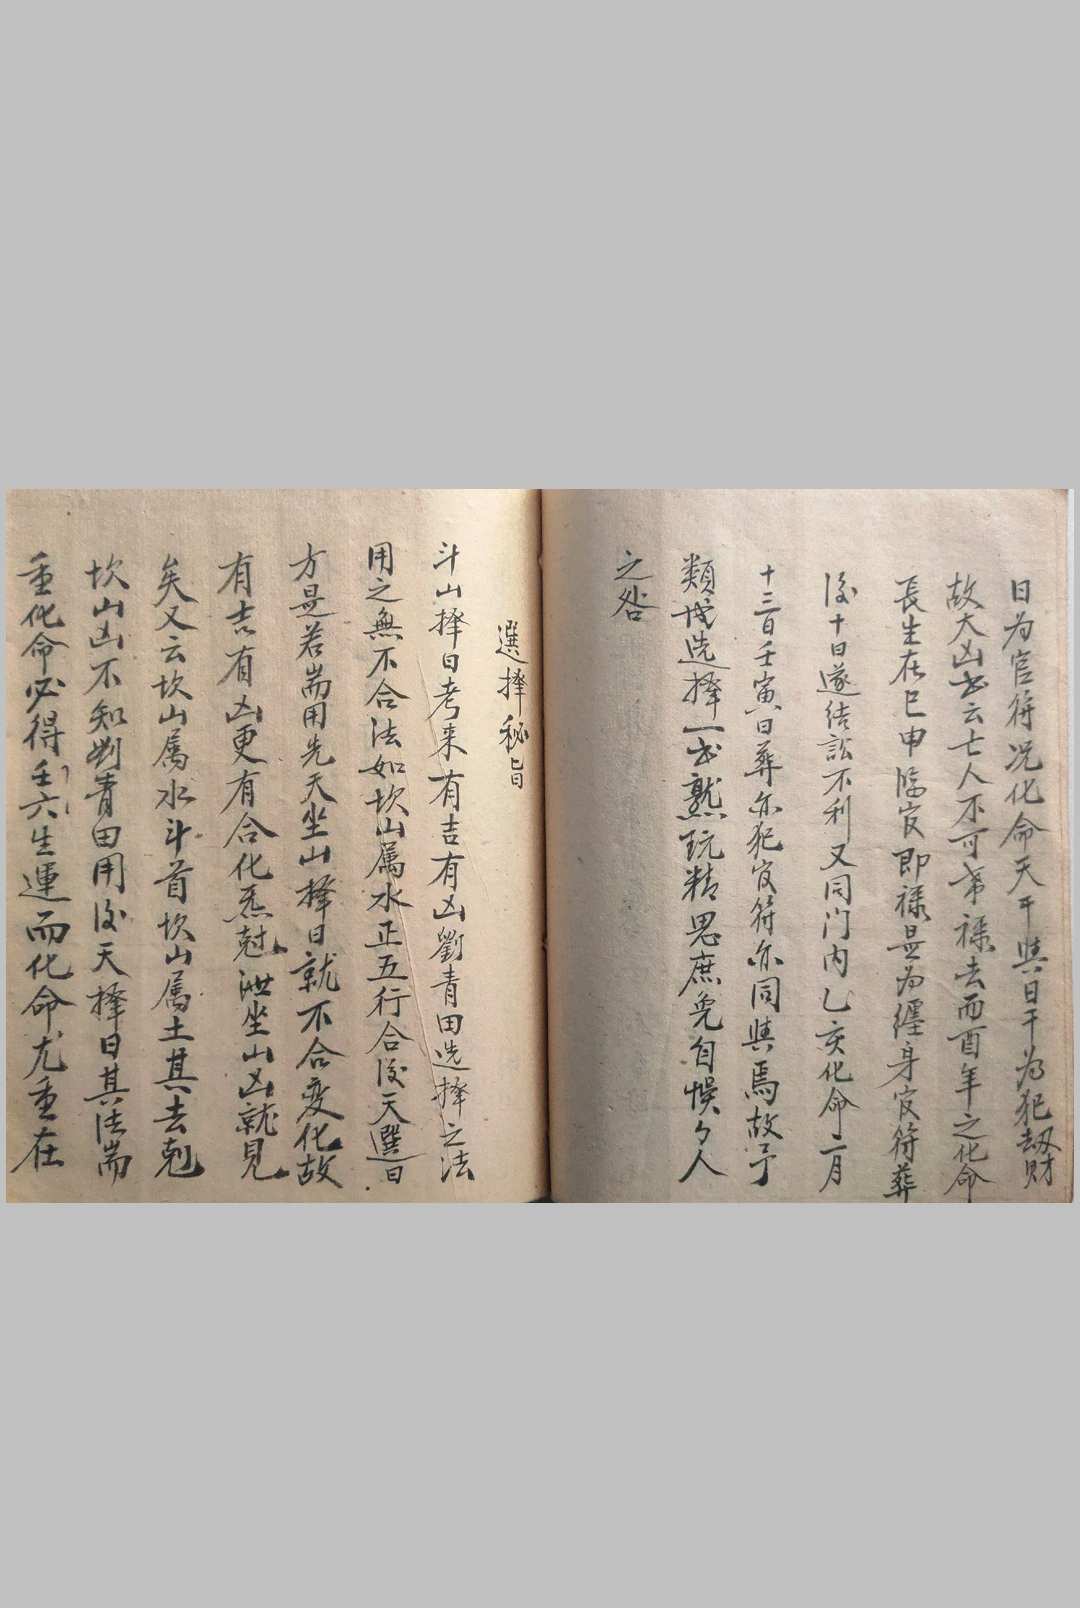 日为官符况化命天干與日干為犯劫财
故大凶書云亡人不可帶禄去而酉年之化命
長生在巳申临官即禄是为纏身官符葬
後十日遂结訟不利又同门内乙亥化命二月
十三日壬寅日葬亦犯官符亦同與焉故予
類成选擇一書熟玩精思庶免自悞々人
之咎
選擇秘旨
斗山擇日考来有吉有凶劉青田选擇之法
用之無不合法如坎山属水正五行合後天選日
方是若耑用先天坐山擇日就不合变化故
有吉有凶更有合化忌尅泄坐山凶就見
矣又云坎山属水斗首坎山属土其去剋
坎山凶不知刘青田用後天擇日其法耑
重化命必得壬六生運而化命尤重在